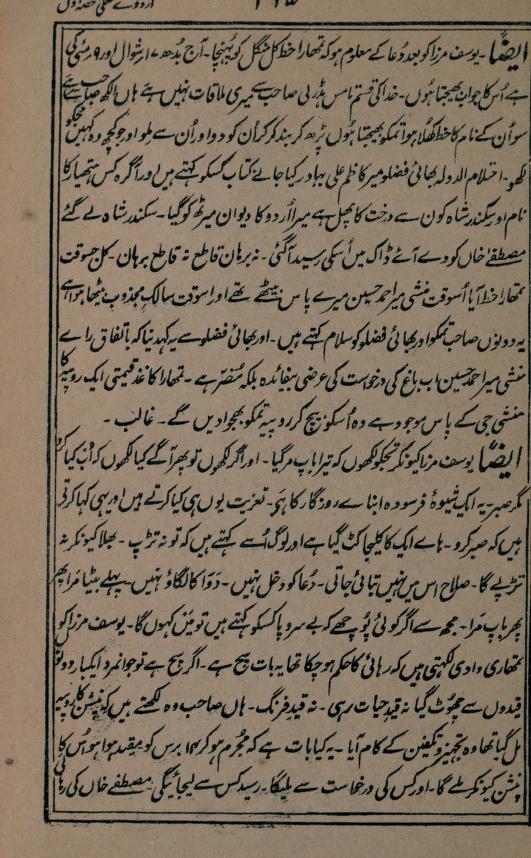 اردوے معلی حصہ اول
ایضاً - یوسف مرزا کو بعد دُعا کے معلوم ہو کہ تمھارا خط کل منگل کو پہنچا - آج بدھ ۱۷ شوال اور ۹ مئی کی
ہے اُس کا جواب بھیجتا ہوں - خدا کی قسم ٹامس ہڈرلی صاحب سے میری ملاقات نہیں ہے ہاں الکھ صاحب سے ہے
سو اُن کے نام کا خط کھلا ہوا تمکو بھیجتا ہوں پڑھ کر بند کر کر اُن کو دو اور اُن سے ملو اور جو کچھ وہ کہیں مجھکو
لکھو - احتلام الدولہ بھائی فضلو میر کاظم علی بہادر کیا جانے کتاب کسکو کہتے ہیں اور آگرہ کس ہتھیار کا
نام اور سکندر شاہ کون سے درخت کا پھل ہے میرا اُردو کا دیوان میرٹھ کو گیا - سکندر شاہ لے گئے
مصطفےٰ خاں کو دے آئے ڈاک میں اُسکی رسید آگئی - نہ برہان قاطع نہ قاطع برہان - کل جسوقت
تمھارا خط آیا اُسوقت منشی میر احمد حسین میرے پاس بیٹھے تھے اور اسوقت سالک مجذوب بیٹھا ہوا ہے
یہ دونوں صاحب تمکو اور بھائی فضلو کو سلام کہتے ہیں - اور بھائی فضلو سے یہ کہدینا کہ باتفاق رائے
منشی میر احمد حسین اب باغ کی درخواست کی عرضی بیفائدہ بلکہ مُضر ہے - تمھارا کاغذ قیمتی ایک روپیہ کا
منشی جی کے پاس موجود ہے وہ اُسکو بیچ کر روپیہ تمکو بھجوا دیں گے - غالب -
ایضاً یوسف مرزا کیونکر تجھکو لکھوں کہ تیرا باپ مر گیا - اور اگر لکھوں تو پھر آگے کیا لکھوں کہ اب کیا کرو
مگر صبر - یہ ایک شیوۂ فرسودہ ابنائے روزگار کا ہے - تعزیت یوں ہی کیا کرتے ہیں اور یہی کہا کرتے
ہیں کہ صبر کرو - ہائے ایک کا کلیجا کٹ گیا ہے اور لوگ اُسے کہتے ہیں کہ تو نہ تڑپ - بھلا کیونکر نہ
تڑپے گا - صلاح اس میں نہیں بتائی جاتی - دُعا کو دخل نہیں - دَوا کا لگاؤ نہیں - پہلے بیٹا مَرا پھر
پھر باپ مَرا - مجھ سے اگر کوئی پُوچھے کہ بے سروپا کسکو کہتے ہیں تو مَیں کہوں گا - یوسف مرزا کو
تمھاری دادی لکھتی ہیں کہ رہائی کا حکم ہو چکا تھا یہ بات سچ ہے - اگر سچ ہے تو جوانمرد ایکبار دونوں
قیدوں سے چھوٹ گیا نہ قید حیات رہی - نہ قید فرنگ - ہاں صاحب وہ لکھتے ہیں کہ پنشن کا روپیہ
مل گیا تھا وہ تجہیز و تکفین کے کام آیا - یہ کیا بات ہے کہ مجرم ہو کر ۱۴ برس کو مقید ہوا ہو اُس کا
پنشن کیونکر ملے گا - اور کس کی درخواست سے ملیگا - رسید کس سے لیجائیگی مصطفےٰ خاں کی